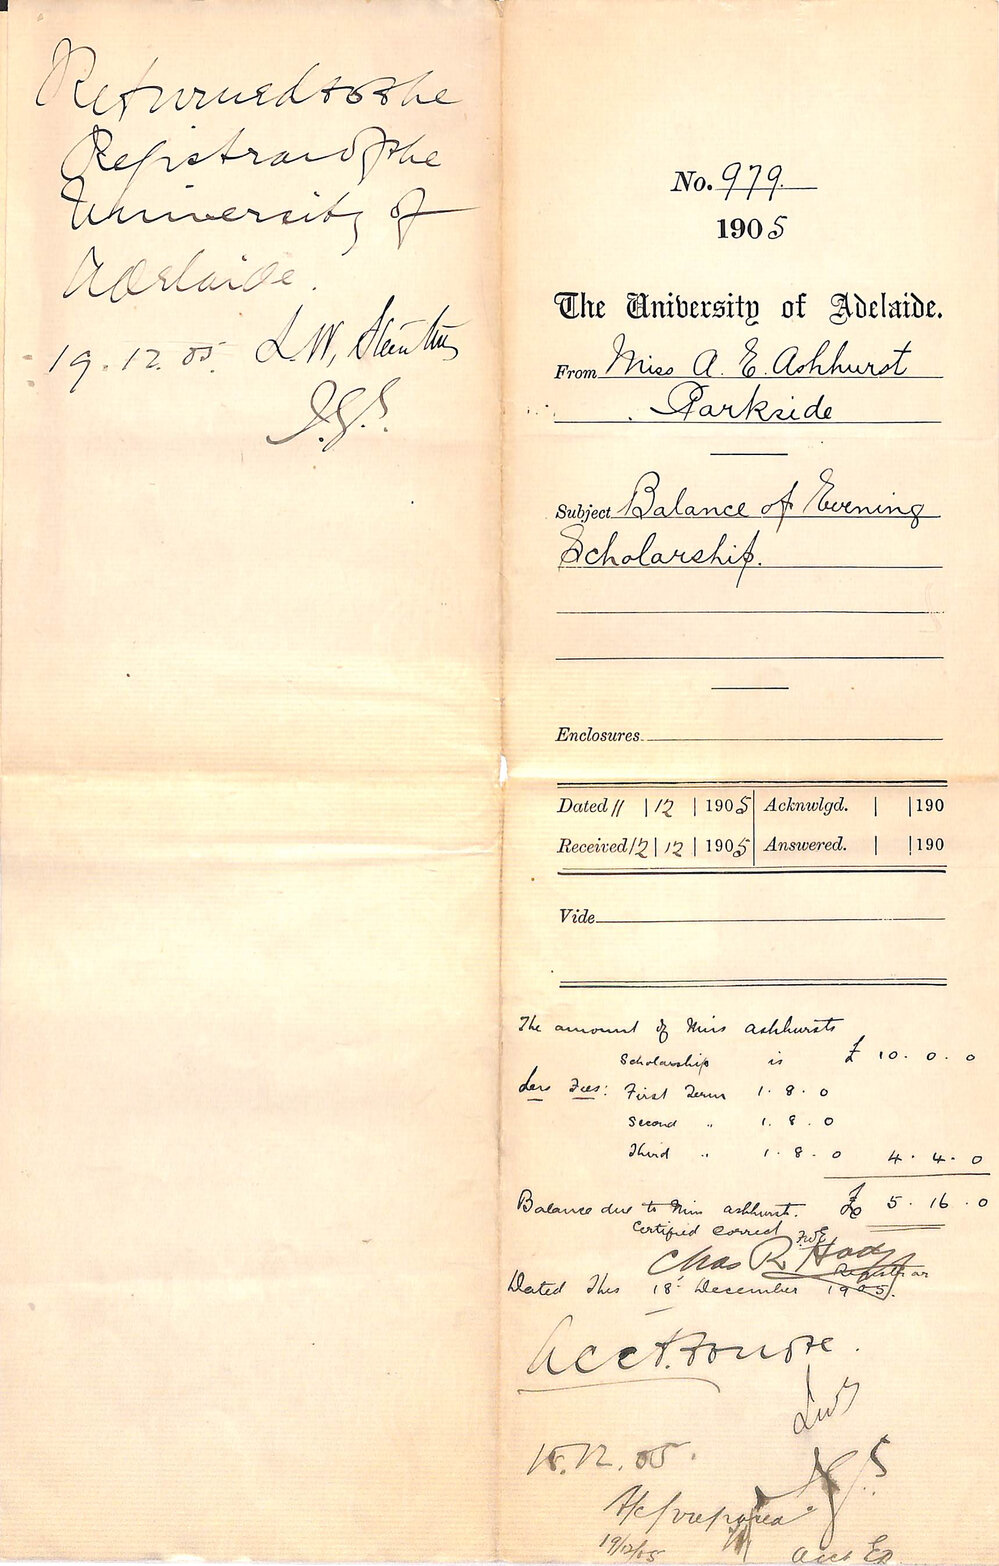 Returned to the
Registrar of the
University of
Adelaide.
19.12.05. L.W.
J.G.S.
No. 979.
1905
The University of Adelaide.
From Miss A. E. Ashhurst
Parkside
Subject Balance of Evening
Scholarship.
Enclosures
Dated 11 | 12 | 1905 | Acknwlgd. | | 190
Received 12 | 12 | 1905 | Answered. | | 190
Vide
The amount of Miss Ashhursts
Scholarship is £ 10. 0. 0
Less Fees: First Term 1. 8. 0
Second " 1. 8. 0
Third " 1. 8. 0 4. 4. 0
Balance due to Miss Ashhurst. £ 5. 16. 0
Certified correct FWE
Chas R Hodge
Registrar
Dated this 18 December 1905.
Acct. to note.
LWS
18.12.05.
J.G.S
A/c prepared
19/12/05